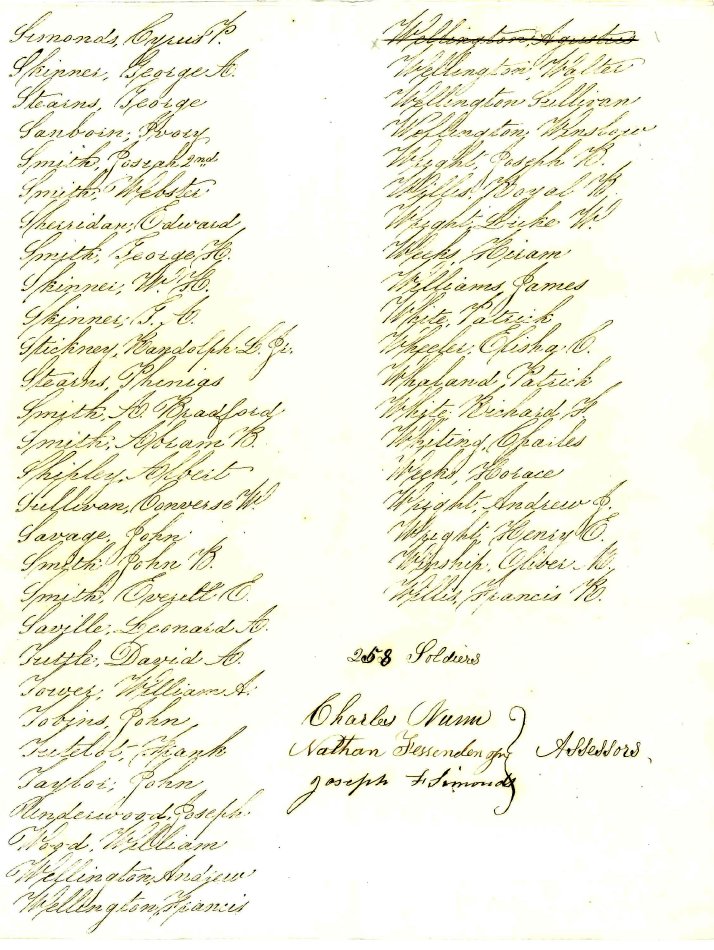 Simonds, Cyrus P.
Skinner, George A.
Stearns, George
Sanborn, Ivory
Smith, Joseph 2nd
Smith, Webster
Sherridan, Edward
Smith, George H.
Skinner, W. H.
Skinner, T. A.
Stickney, Randolph L. Jr.
Stearns, Phenias
Smith, A. Bradford
Smith, Abram B.
Shipley, Albert
Sullivan, Converse W.
Savage, John
Smith, John B.
Smith, Everett E.
Saville, Leonard A.
Tuttle, David A.
Tower, William A.
Tobins, John
Frank
Taylor, John
Underwood, Joseph
Wood, William
Wellington, Andrew
Wellington, Francis
Wellington, Agustus
Wellington, Walter
Wellington Sullivan
Wellington, Winslow
Wright, Joseph R.
Willis, Royal B.
Wright, Luke W.
Weeks, Hiram
Williams, James
White, Patrick
Wheeler, Elisha C.
Whaland, Patrick
White, Richard H.
Whiting, Charles
Weeks, Horace
Wright, Andrew J.
Wright, Henry E.
Winship, Oliver M.
Willis, Francis B.
258 Soldiers
Charles Nunn
Nathan Fessenden Jr Assessors.
Joseph F Simonds